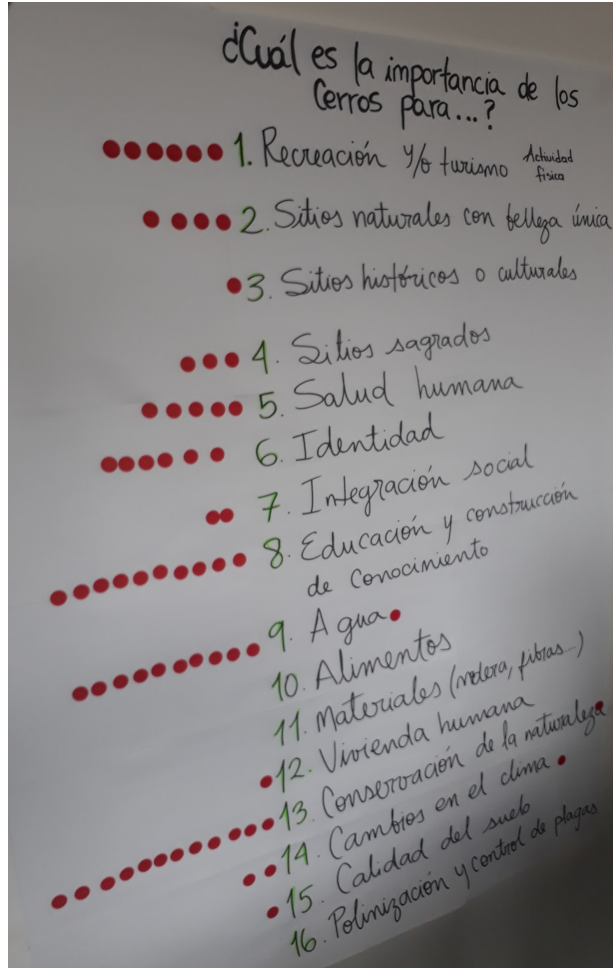 ¿Cuál es la importancia de los
Cerros para...?
1. Recreación y/o turismo Actividad
física
2. Sitios naturales con belleza única
3. Sitios históricos o culturales
4. Sitios sagrados
5. Salud humana
6. Identidad
7. Integración social
8. Educación y construcción
de Conocimiento
9. Agua
10. Alimentos
11. Materiales (madera, fibras...)
12. Vivienda humana
13. Conservación de la naturaleza
14. Cambios en el clima
15. Calidad del suelo
16. Polinización y control de plagas